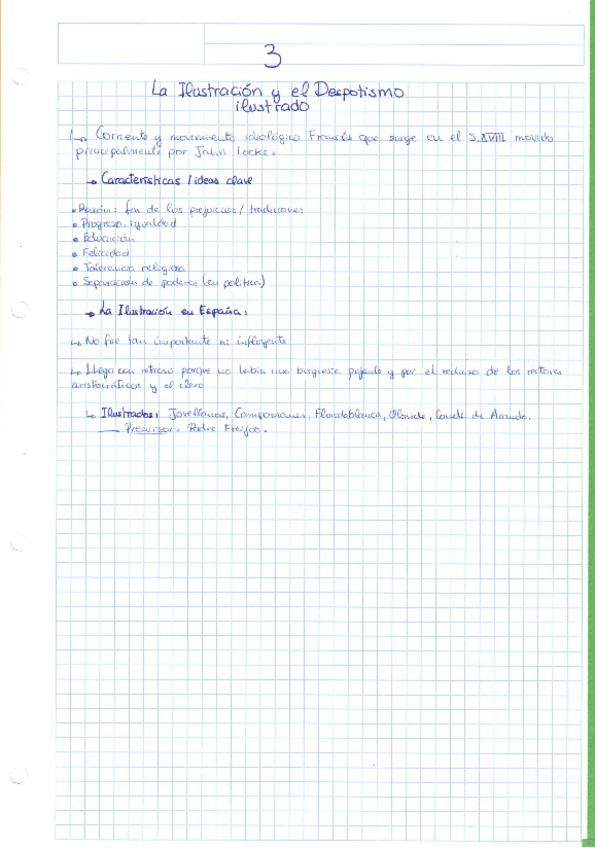 3
La Ilustración y el Despotismo
ilustrado
↳ Corriente y movimiento ideológico Francés que surge en el S.XVIII movido
principalmente por Jahn Locke.
→ Características / ideas clave
• Razón: fin de los prejuicios / tradiciones
• Progreso, igualdad
• Educación
• Felicidad
• Tolerancia religiosa
• Separación de poderes (en política)
→ La Ilustración en España:
↳ No fue tan importante ni influyente
↳ Llega con retraso porque no había una burguesía pujante y por el rechazo de los
aristocráticos y el clero
↳ Ilustrados: Jovellanos, Campomanes, Floridablanca, Olavide, Conde de Aranda.
Precursor. Padre Freijoo.